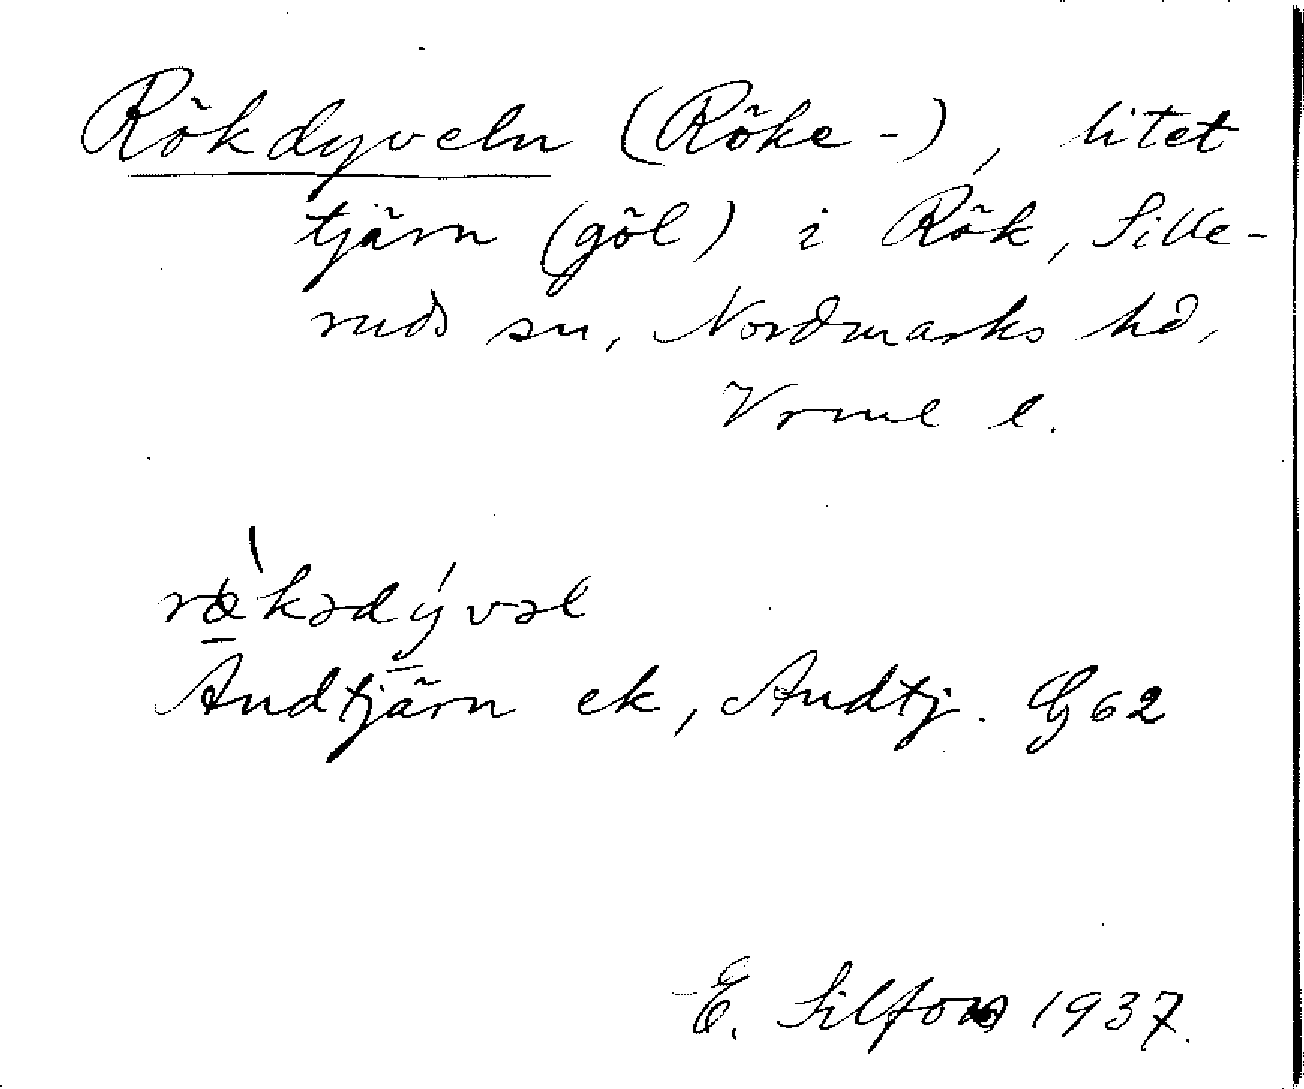 Rökdyveln (Röke-), litet
tjärn (göl) i Rök, Sille-
ruds sn, Nordmarks hd,
Vrml l.
rœ̀kədývəl
Andtjärn ek, Andtj. G 62
E. Silfors 1937.